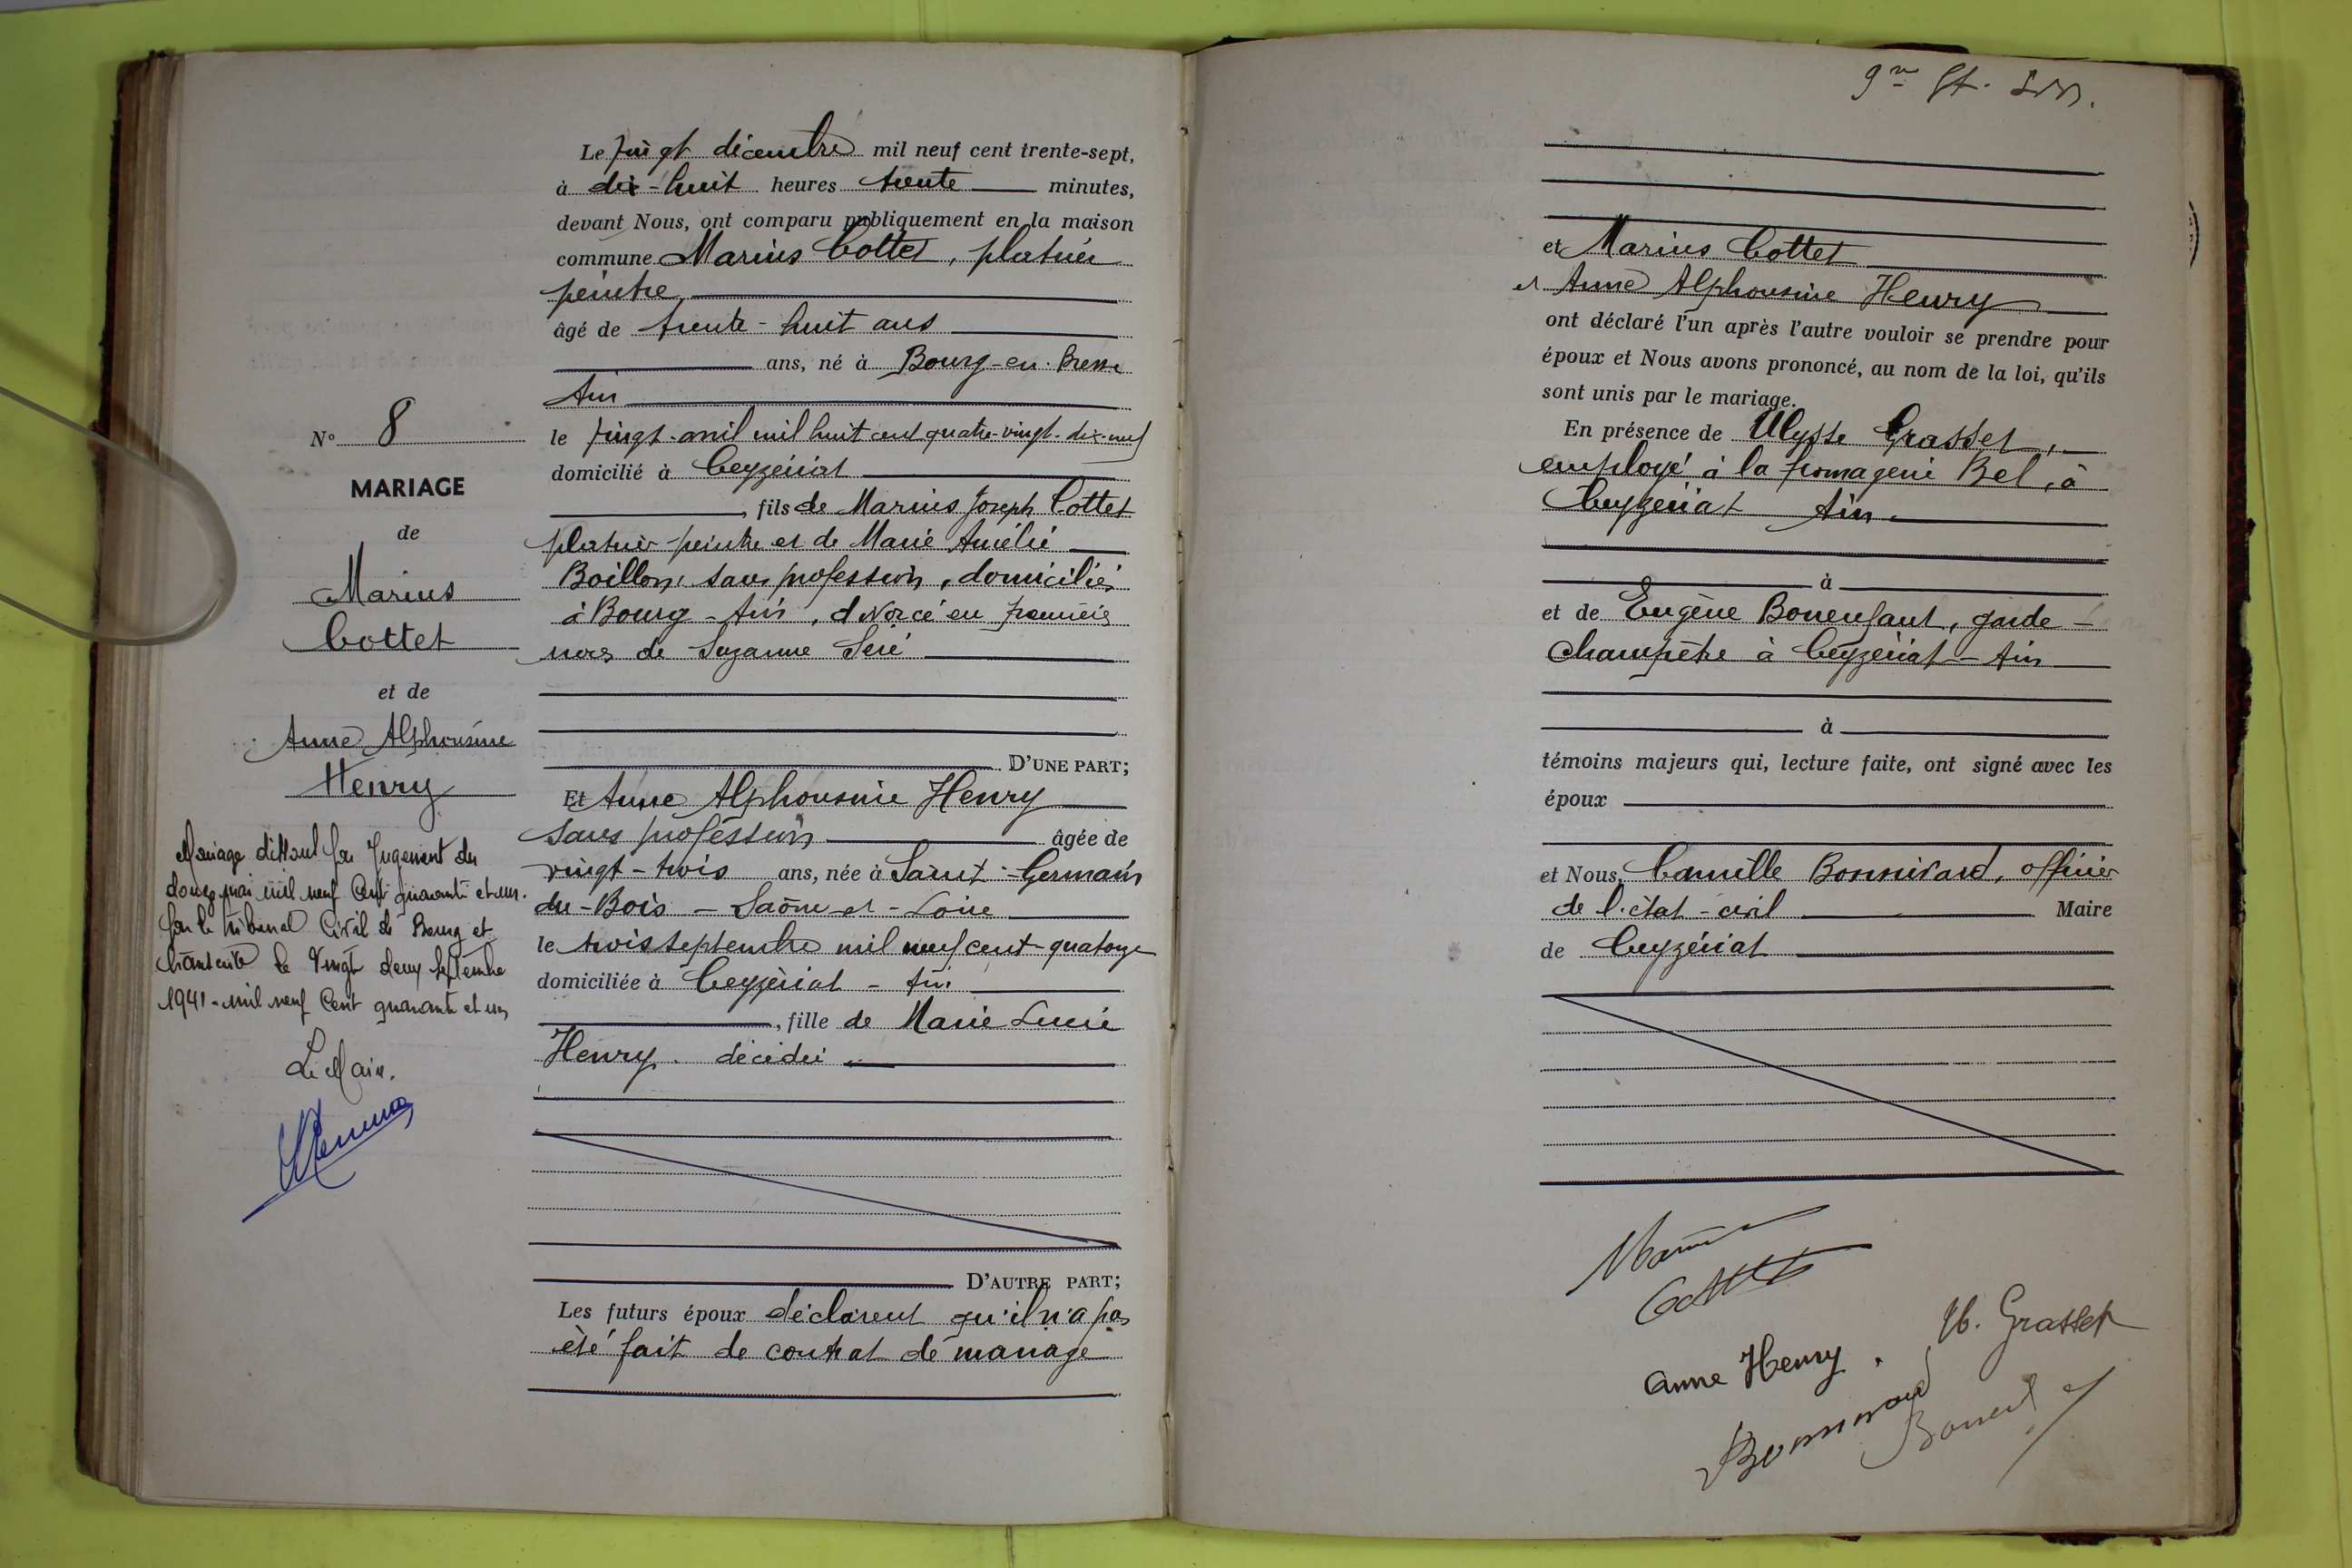 N° 8
MARIAGE
de
Marius
Cottet
et de
Anne Alphonsine
Henry
Mariage dissout par Jugement du
douze mai mil neuf Cent quarante et un.
par le tribunal Civil de Bourg et
transcrite le Vingt deux Septembre
1941 - mil neuf Cent quarante et un
Le Maire.
Le vingt décembre mil neuf cent trente-sept,
à dix-huit heures trente minutes,
devant Nous, ont comparu publiquement en la maison
commune Marius Cottet, platrier
peintre,
âgé de trente-huit ans
ans, né à Bourg-en-Bresse
Ain
le vingt-avril mil huit cent quatre-vingt-dix-neuf
domicilié à Ceyzériat
, fils de Marius Joseph Cottet
platrier-peintre et de Marie Amélie
Boillon, sans profession, domiciliés
à Bourg - Ain, divorcé en premières
noces de Suzanne
D'UNE PART;
Et Anne Alphonsine Henry
sans profession âgée de
vingt-trois ans, née à Saint-Germain
du-Bois - Saône-et-Loire
le trois septembre mil neuf cent-quatorze
domiciliée à Ceyzériat - Ain
, fille de Marie Lucie
Henry. décédée
D'AUTRE PART;
Les futurs époux déclarent qu'il n'a pas
été fait de contrat de mariage
et Marius Cottet
et Anne Alphonsine Henry
ont déclaré l'un après l'autre vouloir se prendre pour
époux et Nous avons prononcé, au nom de la loi, qu'ils
sont unis par le mariage.
En présence de Ulysse Grasset,
employé à la fromagerie Bel, à
Ceyzériat Ain
à
et de Eugène Bonenfant, garde-
Champêtre à Ceyzériat - Ain
à
témoins majeurs qui, lecture faite, ont signé avec les
époux
et Nous, Camille Bonnivard, officier
de l'état-civil Maire
de Ceyzériat
Marius
Cottet
U. Grasset
Anne Henry.
Bonnivard